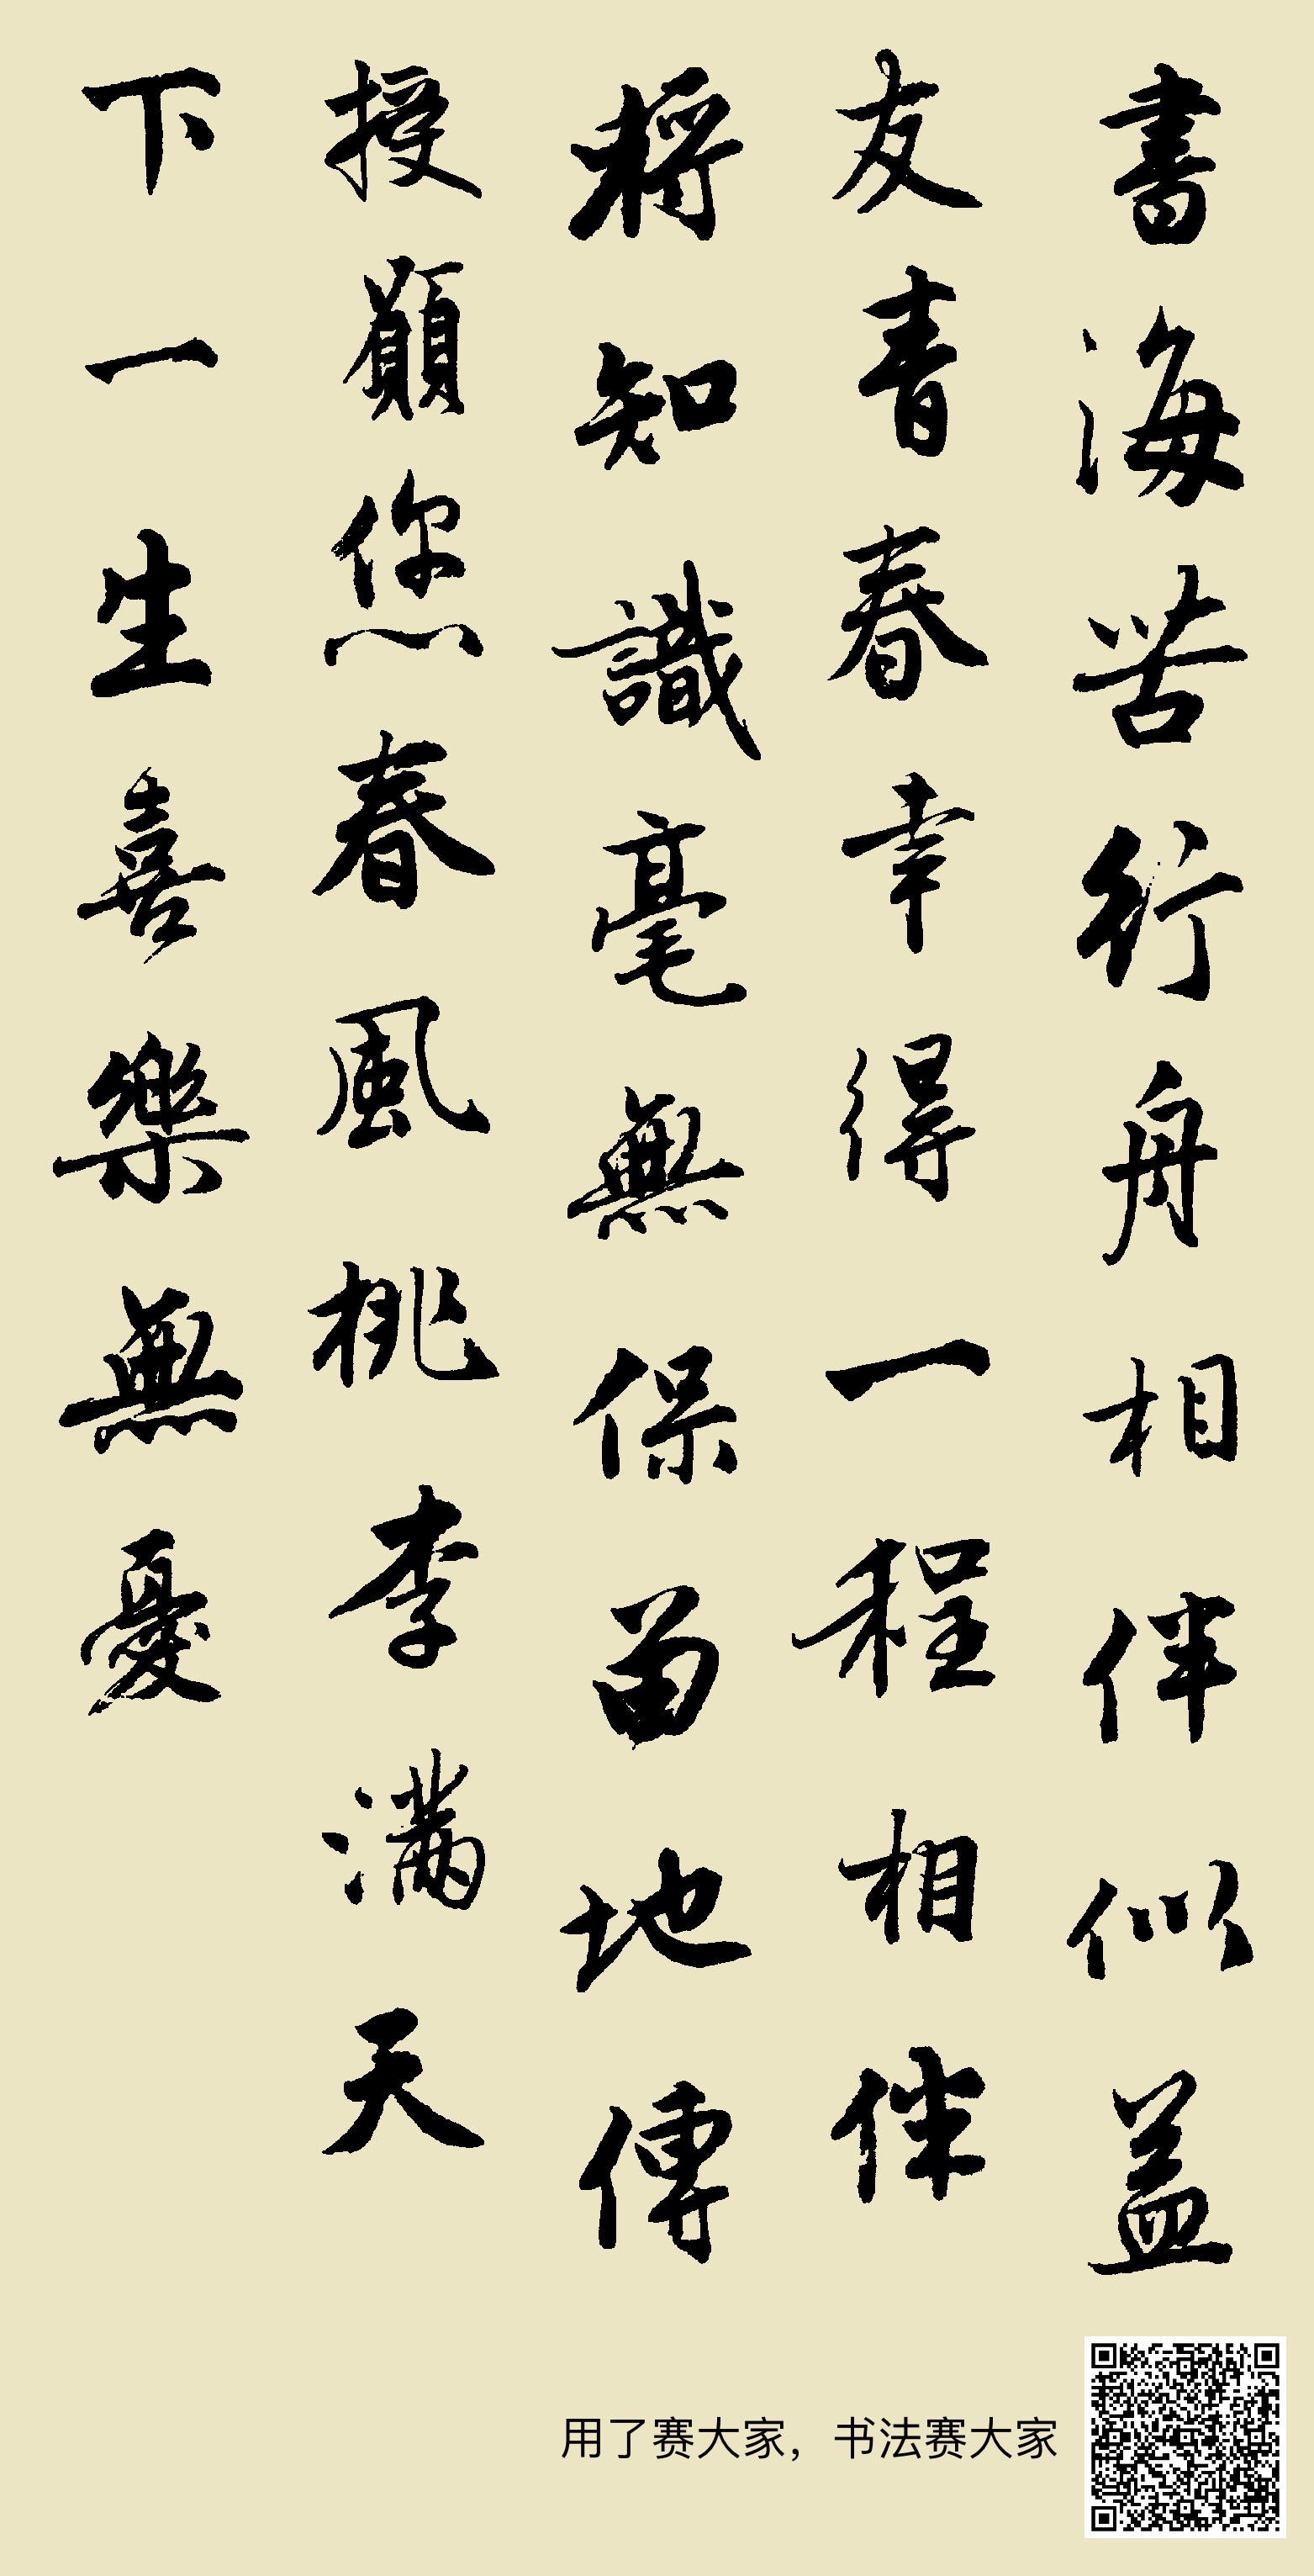 書海苦行舟相伴似益
友青春幸得一程相伴
將知識毫無保留地傳
授願您春風桃李滿天
下一生喜樂無憂
用了赛大家，书法赛大家